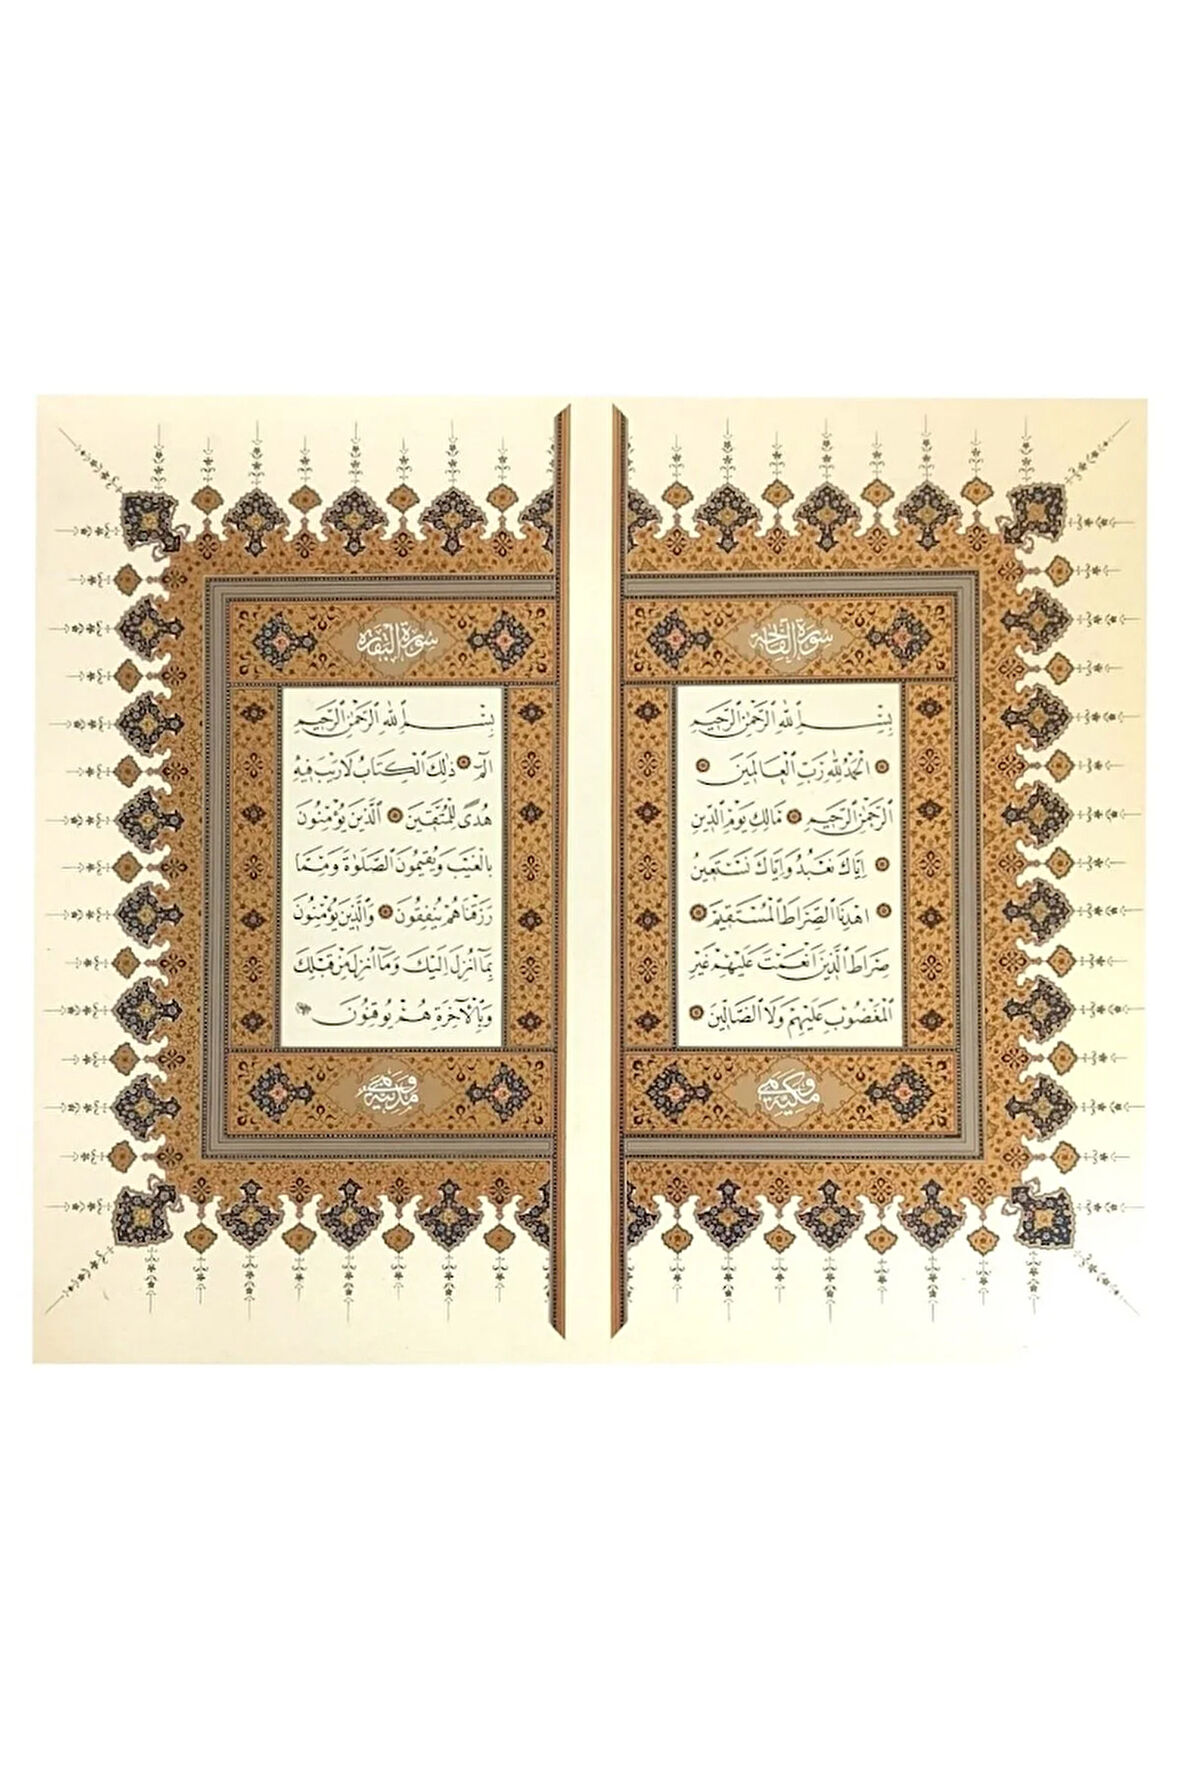 سورة الفاتحة
بِسْمِ اللهِ الرَّحْمٰنِ الرَّحِيمِ
اَلْحَمْدُ لِلّٰهِ رَبِّ الْعَالَمِينَ
اَلرَّحْمٰنِ الرَّحِيمِ مَالِكِ يَوْمِ الدِّينِ
اِيَّاكَ نَعْبُدُ وَاِيَّاكَ نَسْتَعِينُ
اِهْدِنَا الصِّرَاطَ الْمُسْتَقِيمَ
صِرَاطَ الَّذِينَ اَنْعَمْتَ عَلَيْهِمْ غَيْرِ
الْمَغْضُوبِ عَلَيْهِمْ وَلَا الضَّالِّينَ
سورة البقرة
بِسْمِ اللهِ الرَّحْمٰنِ الرَّحِيمِ
الٓمٓ ذٰلِكَ الْكِتَابُ لَا رَيْبَ فِيهِ
هُدًى لِلْمُتَّقِينَ اَلَّذِينَ يُؤْمِنُونَ
بِالْغَيْبِ وَيُقِيمُونَ الصَّلٰوةَ وَمِمَّا
رَزَقْنَاهُمْ يُنْفِقُونَ وَالَّذِينَ يُؤْمِنُونَ
بِمَا اُنْزِلَ اِلَيْكَ وَمَا اُنْزِلَ مِنْ قَبْلِكَ
وَبِالْاٰخِرَةِ هُمْ يُوقِنُونَ